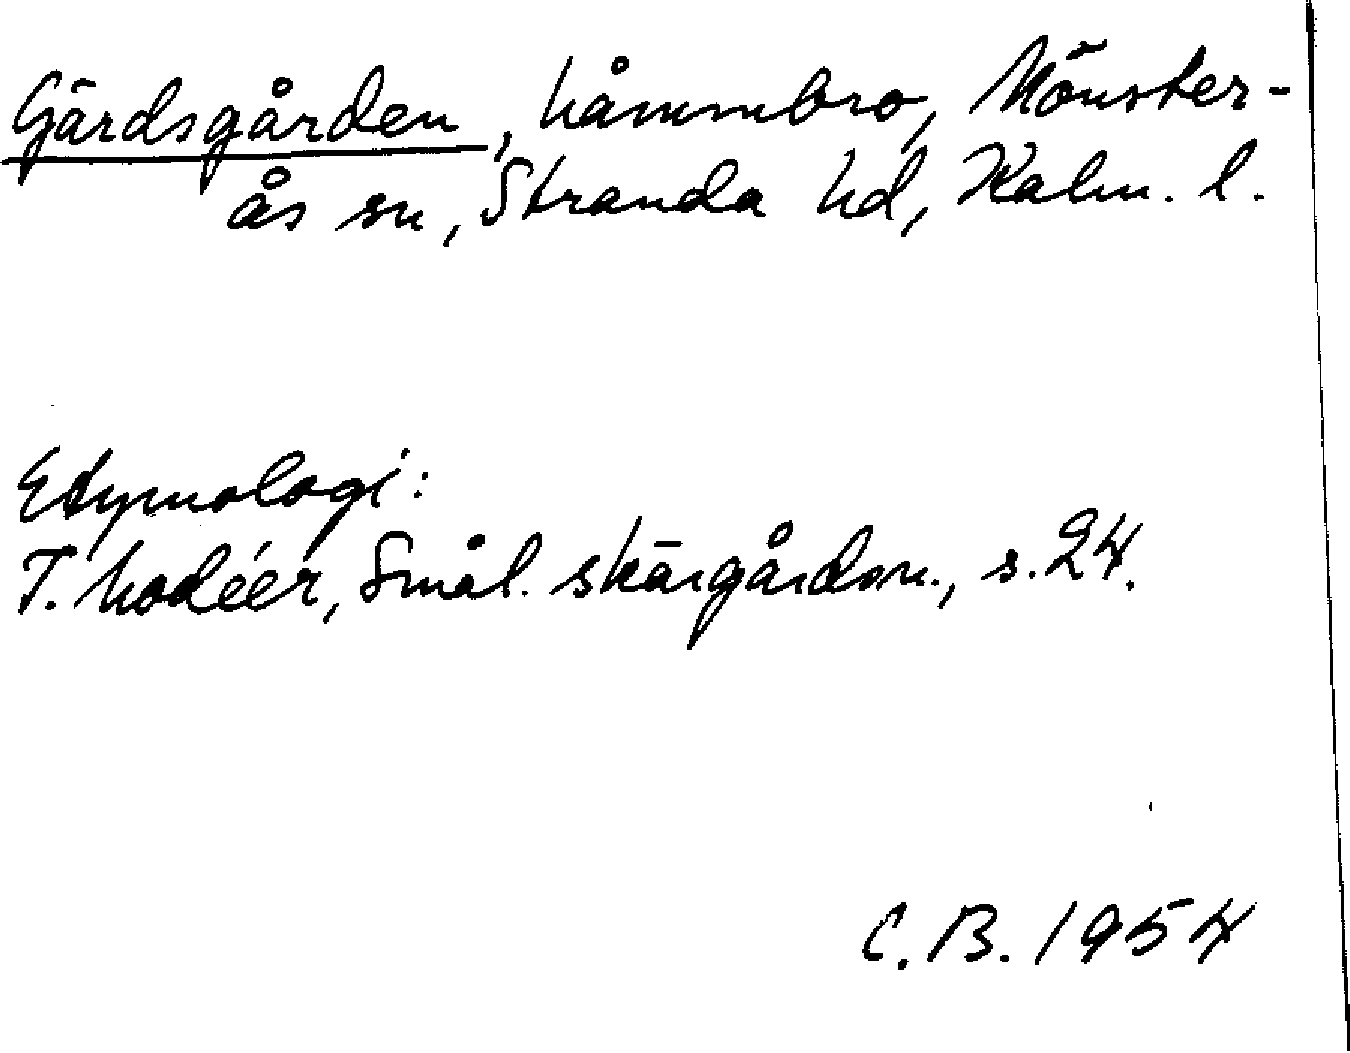 Gärdsgården, Nåmmbro, Mönster-
ås sn, Stranda hd, Kalm. l.
Etymologi:
T. Modéer, Smål. skärgårdsn., s. 24.
C. B. 1954